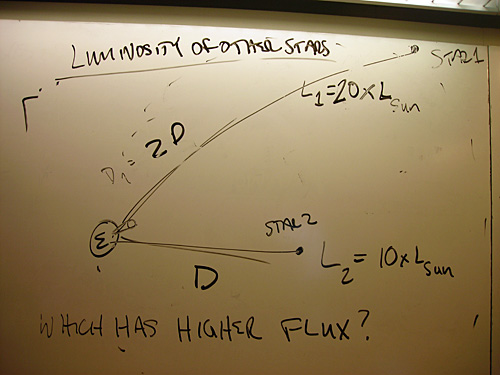 LUMINOSITY OF OTHER STARS
STAR 1
L₁ = 20 x L Sun
D₁ = 2D
E
STAR 2
L₂ = 10 x L Sun
D
WHICH HAS HIGHER FLUX?